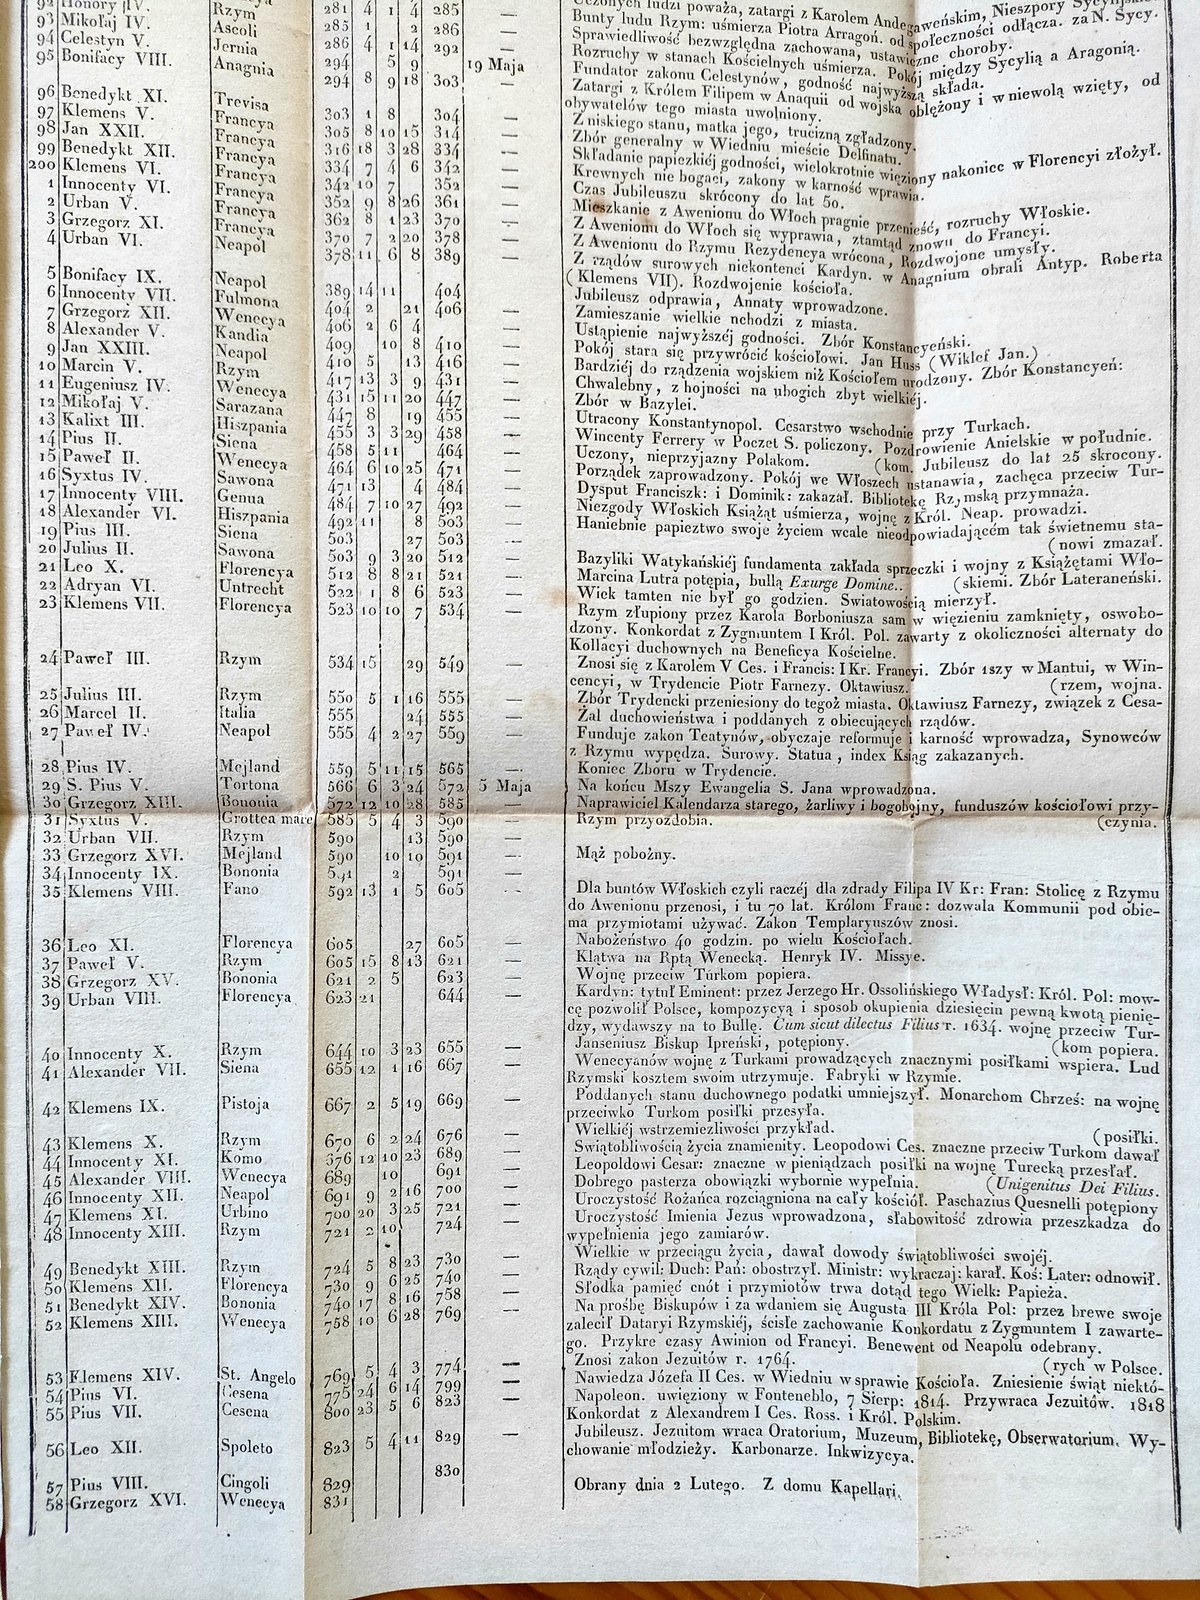 92 Honory IV. Rzym 281 4 1 4 285 — Uczonych ludzi poważa, zatargi z Karolem Andegaweńskim, Nieszpory
93 Mikołaj IV. Ascoli 285 1 2 286 — Bunty ludu Rzym: uśmierza Piotra Arragoń. od społeczności odłącza. za N. Sycy.
94 Celestyn V. Jernia 286 4 1 14 292 — Sprawiedliwość bezwzględna zachowana, ustawiczne choroby.
95 Bonifacy VIII. Anagnia 294 5 9 19 Maja Rozruchy w stanach Kościelnych uśmierza. Pokój między Sycylią a Aragonią.
294 8 9 18 303 — Fundator zakonu Celestynów, godność najwyższą składa.
Zatargi z Królem Filipem w Anaquii od wojska oblężony i w niewolą wzięty, od
obywatelów tego miasta uwolniony.
96 Benedykt XI. Trevisa 303 1 8 304 — Z niskiego stanu, matka jego, trucizną zgładzony.
97 Klemens V. Francya 305 8 10 15 314 — Zbór generalny w Wiedniu mieście Delfinatu.
98 Jan XXII. Francya 316 18 3 28 334 — Składanie papiezkiéj godności, wielokrotnie więziony nakoniec w Florencyi złożył.
99 Benedykt XII. Francya 334 7 4 6 342 — Krewnych nie bogaci, zakony w karność wprawia.
200 Klemens VI. Francya 342 10 7 352 — Czas Jubileuszu skrócony do lat 50.
1 Innocenty VI. Francya 352 9 8 26 361 — Mieszkanie z Awenionu do Włoch pragnie przenieść, rozruchy Włoskie.
2 Urban V. Francya 362 8 1 23 370 — Z Awenionu do Włoch się wyprawia, ztamtąd znowu do Francyi.
3 Grzegorz XI. Francya 370 7 2 20 378 — Z Awenionu do Rzymu Rezydencya wrócona, Rozdwojone umysły.
4 Urban VI. Neapol 378 11 6 8 389 — Z rządów surowych niekontenci Kardyn. w Anagnium obrali Antyp. Roberta
(Klemens VII). Rozdwojenie kościoła.
5 Bonifacy IX. Neapol 389 14 11 404 — Jubileusz odprawia, Annaty wprowadzone.
6 Innocenty VII. Fulmona 404 2 21 406 — Zamieszanie wielkie uchodzi z miasta.
7 Grzegorz XII. Wenecya 406 2 6 4 — Ustąpienie najwyższéj godności. Zbór Konstancyeński.
8 Alexander V. Kandia 409 10 8 410 — Pokój stara się przywrócić kościołowi. Jan Huss (Wiklef Jan.)
9 Jan XXIII. Neapol 410 5 13 416 — Bardziéj do rządzenia wojskiem niż Kościołem urodzony. Zbór Konstancyeń:
10 Marcin V. Rzym 417 13 3 9 431 — Chwalebny, z hojności na ubogich zbyt wielkiéj.
11 Eugeniusz IV. Wenecya 431 15 11 20 447 — Zbór w Bazylei.
12 Mikołaj V. Sarazana 447 8 19 455 — Utracony Konstantynopol. Cesarstwo wschodnie przy Turkach.
13 Kalixt III. Hiszpania 455 3 3 29 458 — Wincenty Ferrery w Poczet S. policzony. Pozdrowienie Anielskie w południe.
14 Pius II. Siena 458 5 11 464 — Uczony, nieprzyjazny Polakom. (kom. Jubileusz do lat 25 skrocony.
15 Paweł II. Wenecya 464 6 10 25 471 — Porządek zaprowadzony. Pokój we Włoszech ustanawia, zachęca przeciw Tur-
16 Syxtus IV. Sawona 471 13 4 484 — Dysput Franciszk: i Dominik: zakazał. Bibliotekę Rzymską przymnaża.
17 Innocenty VIII. Genua 484 7 10 27 492 — Niezgody Włoskich Książąt uśmierza, wojnę z Król. Neap. prowadzi.
18 Alexander VI. Hiszpania 492 11 8 503 — Haniebnie papieztwo swoje życiem wcale nieodpowiadającém tak świetnemu sta-
19 Pius III. Siena 503 27 503 — (nowi zmazał.
20 Julius II. Sawona 503 9 3 20 512 — Bazyliki Watykańskiéj fundamenta zakłada sprzeczki i wojny z Książętami Wło-
21 Leo X. Florencya 512 8 8 21 521 — Marcina Lutra potępia, bullą Exurge Domine.. (skiemi. Zbór Lateraneński.
22 Adryan VI. Untrecht 522 1 8 6 523 — Wiek tamten nie był go godzien. Swiatowością mierzył.
23 Klemens VII. Florencya 523 10 10 7 534 — Rzym złupiony przez Karola Borboniusza sam w więzieniu zamknięty, oswobo-
dzony. Konkordat z Zygmuntem I Król. Pol. zawarty z okoliczności alternaty do
Kollacyi duchownych na Beneficya Kościelne.
24 Paweł III. Rzym 534 15 29 549 — Znosi się z Karolem V Ces. i Francis: I Kr. Francyi. Zbór 1szy w Mantui, w Win-
cencyi, w Trydencie Piotr Farnezy. Oktawiusz. (rzem, wojna.
25 Julius III. Rzym 550 5 1 16 555 — Zbór Trydencki przeniesiony do tegoż miasta. Oktawiusz Farnezy, związek z Cesa-
26 Marcel II. Italia 555 24 555 — Żal duchowieństwa i poddanych z obiecujących rządów.
27 Paweł IV. Neapol 555 4 2 27 559 — Funduje zakon Teatynów, obyczaje reformuje i karność wprowadza, Synowców
z Rzymu wypędza. Surowy. Statua, index Ksiąg zakazanych.
28 Pius IV. Mejland 559 5 11 15 565 — Koniec Zboru w Trydencie.
29 S. Pius V. Tortona 566 6 3 24 572 5 Maja Na końcu Mszy Ewangelia S. Jana wprowadzona.
30 Grzegorz XIII. Bononia 572 12 10 28 585 — Naprawiciel Kalendarza starego, żarliwy i bogobojny, funduszów kościołowi przy-
31 Syxtus V. Grottea mare 585 5 4 3 590 — Rzym przyozdobia. (czynia.
32 Urban VII. Rzym 590 13 590 —
33 Grzegorz XVI. Mejland 590 10 10 591 — Mąż pobożny.
34 Innocenty IX. Bononia 591 2 591 —
35 Klemens VIII. Fano 592 13 1 5 605 - - Dla buntów Włoskich czyli raczéj dla zdrady Filipa IV Kr: Fran: Stolicę z Rzymu
do Awenionu przenosi, i tu 70 lat. Królom Franc: dozwala Kommunii pod obie-
ma przymiotami używać. Zakon Templaryuszów znosi.
36 Leo XI. Florencya 605 27 605 — Nabożeństwo 40 godzin. po wielu Kościołach.
37 Paweł V. Rzym 605 15 8 13 621 — Klątwa na Rptą Wenecką. Henryk IV. Missye.
38 Grzegorz XV. Bononia 621 2 5 623 — Wojnę przeciw Turkom popiera.
39 Urban VIII. Florencya 623 21 644 — Kardyn: tytuł Eminent: przez Jerzego Hr. Ossolińskiego Władysł: Król. Pol: mow-
cę pozwolił Polsce, kompozycyą i sposob okupienia dziesięcin pewną kwotą pienię-
dzy, wydawszy na to Bullę. Cum sicut dilectus Filius r. 1634. wojnę przeciw Tur-
40 Innocenty X. Rzym 644 10 3 23 655 — Janseniusz Biskup Ipreński, potępiony. (kom popiera.
41 Alexander VII. Siena 655 12 1 16 667 — Wenecyanów wojnę z Turkami prowadzących znacznymi posiłkami wspiera. Lud
Rzymski kosztem swoim utrzymuje. Fabryki w Rzymie.
42 Klemens IX. Pistoja 667 2 5 19 669 — Poddanych stanu duchownego podatki umniejszył. Monarchom Chrześ: na wojnę
przeciwko Turkom posiłki przesyła.
43 Klemens X. Rzym 670 6 2 24 676 — Wielkiéj wstrzemiezliwości przykład. (posiłki.
44 Innocenty XI. Komo 376 12 10 23 689 — Swiątobliwością życia znamienity. Leopodowi Ces. znaczne przeciw Turkom dawał
45 Alexander VIII. Wenecya 689 10 691 — Leopoldowi Cesar: znaczne w pieniądzach posiłki na wojnę Turecką przesłał.
46 Innocenty XII. Neapol 691 9 2 16 700 — Dobrego pasterza obowiązki wybornie wypełnia. (Unigenitus Dei Filius.
47 Klemens XI. Urbino 700 20 3 25 721 — Uroczystość Rożańca rozciągniona na cały kościół. Paschazius Quesnelli potępiony
48 Innocenty XIII. Rzym 721 2 10 724 — Uroczystość Imienia Jezus wprowadzona, słabowitość zdrowia przeszkadza do
wypełnienia jego zamiarów.
49 Benedykt XIII. Rzym 724 5 8 23 730 — Wielkie w przeciągu życia, dawał dowody świątobliwości swojéj.
50 Klemens XII. Florencya 730 9 6 25 740 — Rządy cywil: Duch: Pań: obostrzył. Ministr: wykraczaj: karał. Koś: Later: odnowił.
51 Benedykt XIV. Bononia 740 17 8 16 758 — Słodka pamięć cnót i przymiotów trwa dotąd tego Wielk: Papieża.
52 Klemens XIII. Wenecya 758 10 6 28 769 — Na prośbę Biskupów i za wdaniem się Augusta III Króla Pol: przez brewe swoje
zalecił Dataryi Rzymskiéj, ścisłe zachowanie Konkordatu z Zygmuntem I zawarte-
go. Przykre czasy Awinion od Francyi. Benewent od Neapolu odebrany.
53 Klemens XIV. St. Angelo 769 5 4 3 774 — Znosi zakon Jezuitów r. 1764. (rych w Polsce.
54 Pius VI. Cesena 775 24 6 14 799 — Nawiedza Józefa II Ces. w Wiedniu w sprawie Kościoła. Zniesienie świąt niektó-
55 Pius VII. Cesena 800 23 5 6 823 — Napoleon. uwięziony w Fonteneblo, 7 Sierp: 1814. Przywraca Jezuitów. 1818
Konkordat z Alexandrem I Ces. Ross. i Król. Polskim.
56 Leo XII. Spoleto 823 5 4 11 829 — Jubileusz. Jezuitom wraca Oratorium, Muzeum, Bibliotekę, Obserwatorium. Wy-
chowanie młodzieży. Karbonarze. Inkwizycya.
57 Pius VIII. Cingoli 829 830
58 Grzegorz XVI. Wenecya 831 Obrany dnia 2 Lutego. Z domu Kapellari.